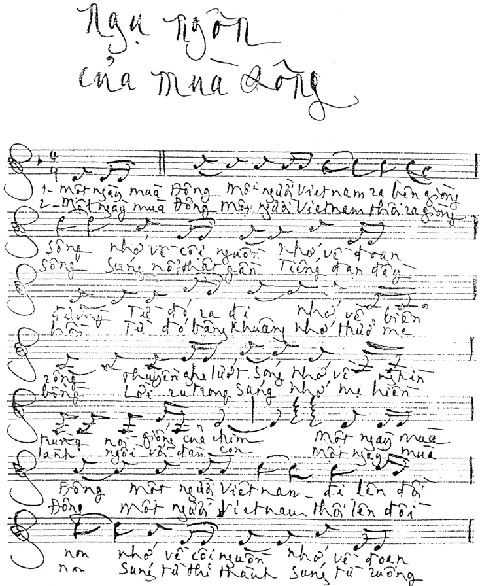 Ngụ ngôn
của mùa đông
1- Một ngày mùa Đông Một người Việt nam ra bên giòng
2- Một ngày mùa Đông Một người Việt nam thôi ra giòng
Sông nhớ về cội nguồn nhớ về đoạn
Sông Súng nổi thật gần Tiếng đạn đầy
đường Từ đó ra đi nhớ về biển
hồn Từ đó bâng khuâng nhớ thuở mẹ
rộng thuyền ghe lướt Sóng nhớ về
bồng Lời ru trong Sáng nhớ mẹ hiền
rừng nòi giống của chim Một ngày mùa
lành ngồi với đàn con Một ngày mùa
Đông Một người Việt nam đi lên đồi
Đông Một người Việt nam thôi lên đồi
non nhớ về cội nguồn nhớ về đoạn
non Súng từ thị thành Súng từ ruộng